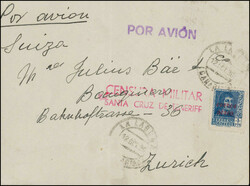 Por avion
POR AVIÓN
Suiza
Mrs Julius Bär &
CENSURA MILITAR
SANTA CRUZ DE TENERIFE
Bahnhofstrasse - 36
Zurich